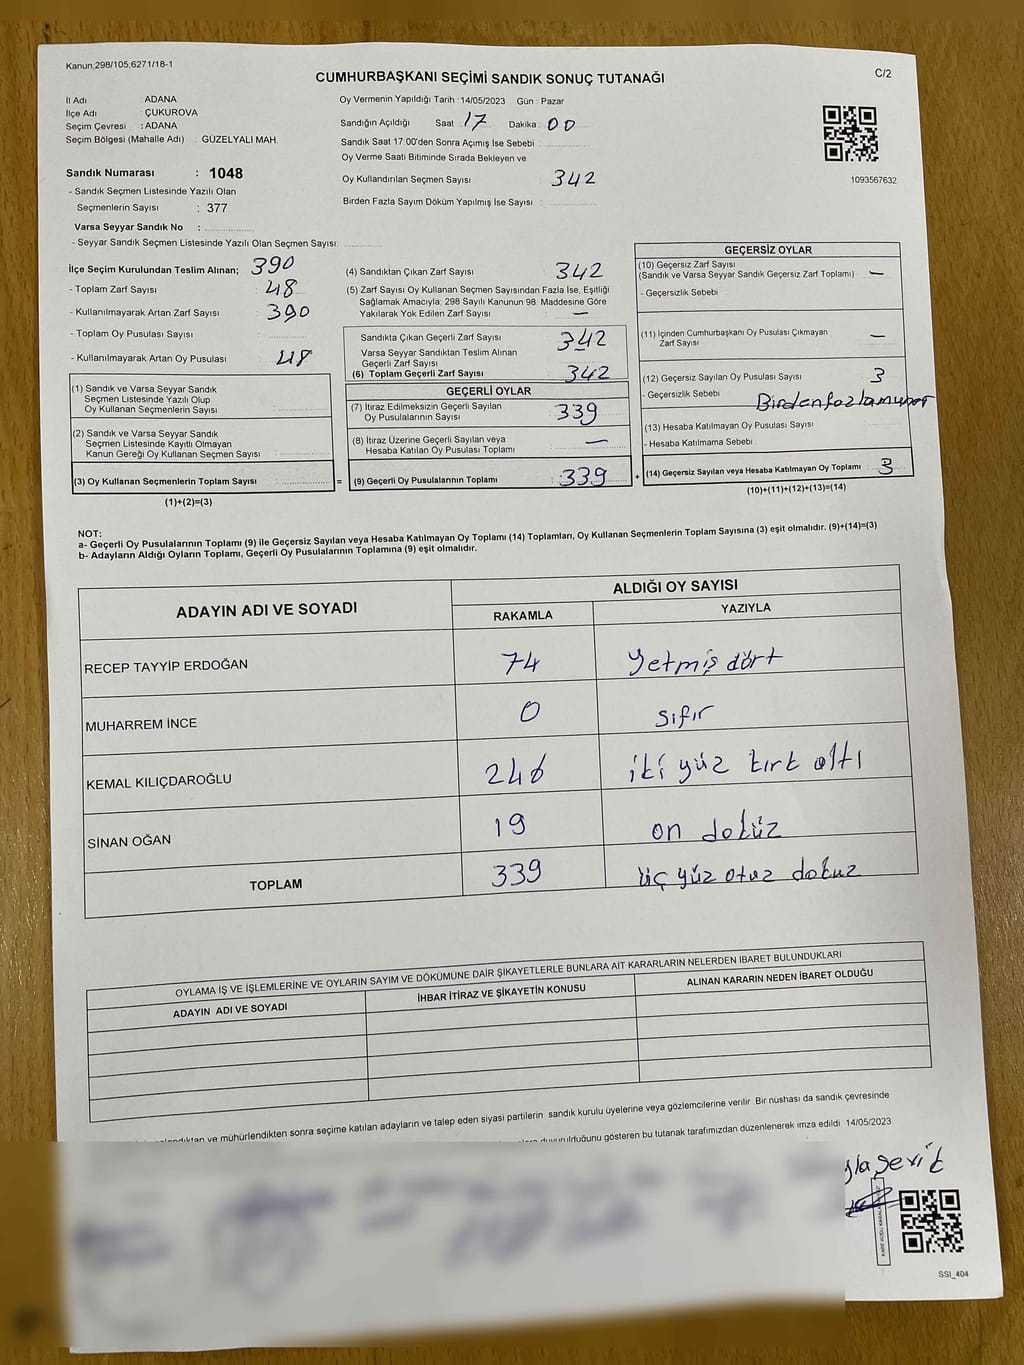 Kanun,298/105,6271/18-1
CUMHURBAŞKANI SEÇİMİ SANDIK SONUÇ TUTANAĞI
C/2
İl Adı ADANA
İlçe Adı ÇUKUROVA
Seçim Çevresi : ADANA
Seçim Bölgesi (Mahalle Adı) : GÜZELYALI MAH.
Sandık Numarası : 1048
- Sandık Seçmen Listesinde Yazılı Olan
Seçmenlerin Sayısı : 377
Varsa Seyyar Sandık No :
- Seyyar Sandık Seçmen Listesinde Yazılı Olan Seçmen Sayısı:
Oy Vermenin Yapıldığı Tarih :14/05/2023 Gün : Pazar
Sandığın Açıldığı Saat : 17 Dakika : 00
Sandık Saat 17:00'den Sonra Açımış İse Sebebi :
Oy Verme Saati Bitiminde Sırada Bekleyen ve
Oy Kullandırılan Seçmen Sayısı : 342
Birden Fazla Sayım Döküm Yapılmış İse Sayısı :
1093567632
İlçe Seçim Kurulundan Teslim Alınan; 390
- Toplam Zarf Sayısı : 48
- Kullanılmayarak Artan Zarf Sayısı : 390
- Toplam Oy Pusulası Sayısı :
- Kullanılmayarak Artan Oy Pusulası : 48
(1) Sandık ve Varsa Seyyar Sandık
Seçmen Listesinde Yazılı Olup
Oy Kullanan Seçmenlerin Sayısı :
(2) Sandık ve Varsa Seyyar Sandık
Seçmen Listesinde Kayıtlı Olmayan
Kanun Gereği Oy Kullanan Seçmen Sayısı :
(3) Oy Kullanan Seçmenlerin Toplam Sayısı :
(1)+(2)=(3)
(4) Sandıktan Çıkan Zarf Sayısı : 342
(5) Zarf Sayısı Oy Kullanan Seçmen Sayısından Fazla İse, Eşitliği
Sağlamak Amacıyla; 298 Sayılı Kanunun 98. Maddesine Göre
Yakılarak Yok Edilen Zarf Sayısı : —
Sandıkta Çıkan Geçerli Zarf Sayısı : 342
Varsa Seyyar Sandıktan Teslim Alınan
Geçerli Zarf Sayısı :
(6) Toplam Geçerli Zarf Sayısı : 342
GEÇERLİ OYLAR
(7) İtiraz Edilmeksizin Geçerli Sayılan
Oy Pusulalarının Sayısı : 339
(8) İtiraz Üzerine Geçerli Sayılan veya
Hesaba Katılan Oy Pusulası Toplamı : —
= (9) Geçerli Oy Pusulalarının Toplamı : 339 +
GEÇERSİZ OYLAR
(10) Geçersiz Zarf Sayısı
(Sandık ve Varsa Seyyar Sandık Geçersiz Zarf Toplamı) : —
- Geçersizlik Sebebi :
(11) İçinden Cumhurbaşkanı Oy Pusulası Çıkmayan
Zarf Sayısı : —
(12) Geçersiz Sayılan Oy Pusulası Sayısı : 3
- Geçersizlik Sebebi : Birdenfazlamuhor
(13) Hesaba Katılmayan Oy Pusulası Sayısı :
- Hesaba Katılmama Sebebi :
(14) Geçersiz Sayılan veya Hesaba Katılmayan Oy Toplamı : 3
(10)+(11)+(12)+(13)=(14)
NOT:
a- Geçerli Oy Pusulalarının Toplamı (9) ile Geçersiz Sayılan veya Hesaba Katılmayan Oy Toplamı (14) Toplamları, Oy Kullanan Seçmenlerin Toplam Sayısına (3) eşit olmalıdır. (9)+(14)=(3)
b- Adayların Aldığı Oyların Toplamı, Geçerli Oy Pusulalarının Toplamına (9) eşit olmalıdır.
ADAYIN ADI VE SOYADI
ALDIĞI OY SAYISI
RAKAMLA YAZIYLA
RECEP TAYYİP ERDOĞAN 74 Yetmiş dört
MUHARREM İNCE 0 sıfır
KEMAL KILIÇDAROĞLU 246 iki yüz kırk altı
SİNAN OĞAN 19 on dokuz
TOPLAM 339 üç yüz otuz dokuz
OYLAMA İŞ VE İŞLEMLERİNE VE OYLARIN SAYIM VE DÖKÜMÜNE DAİR ŞİKAYETLERLE BUNLARA AİT KARARLARIN NELERDEN İBARET BULUNDUKLARI
ADAYIN ADI VE SOYADI İHBAR İTİRAZ VE ŞİKAYETİN KONUSU ALINAN KARARIN NEDEN İBARET OLDUĞU
ve mühürlendikten sonra seçime katılan adayların ve talep eden siyasi partilerin sandık kurulu üyelerine veya gözlemcilerine verilir. Bir nüshası da sandık çevresinde
duyurulduğunu gösteren bu tutanak tarafımızdan düzenlenerek imza edildi. 14/05/2023
SSI_404